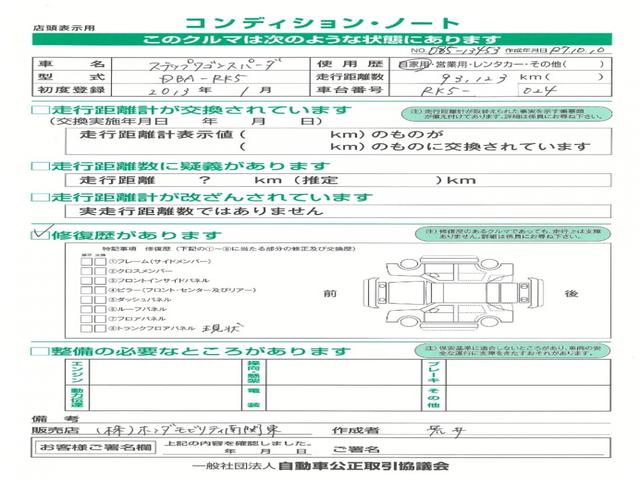 店頭表示用
コンディション・ノート
このクルマは次のような状態にあります
NO. 085-13453 作成年月日 R7.10.10
車名 ステップワゴンスパーダ 使用歴 自家用・営業用・レンタカー・その他( )
型式 DBA-RK5 走行距離数 93,123 km( )
初度登録 2013年 1月 車台番号 RK5- 024
走行距離計が交換されています
(交換実施年月日 年 月 日)
注)走行距離計が取替えられた事実を示す書類が備え付けてあります。詳細は係員にお尋ね下さい。
走行距離計表示値( km)のものが
( km)のものに交換されています
走行距離数に疑義があります
走行距離 ? km(推定 )km
走行距離計が改ざんされています
実走行距離数ではありません
修復歴があります
注)修復歴のあるクルマであっても、走行上は支障ありません。詳細は係員にお尋ね下さい。
特記事項 修復歴(下記の①〜⑧に当たる部分の修正及び交換歴)
修正 交換
①フレーム(サイドメンバー)
②クロスメンバー
③フロントインサイドパネル
④ピラー(フロント・センター及びリアー)
⑤ダッシュパネル
⑥ルーフパネル
⑦フロアパネル
⑧トランクフロアパネル 現状
前 後
整備の必要なところがあります
注)保安基準に適合しないところがあり、車両の安全な運行に支障をきたすおそれがあります。
エンジン 操向・懸架 ブレーキ
動力伝達 電装 その他
備考
販売店 (株)ホンダモビリティ南関東 作成者 荒井
お客様ご署名欄 上記の内容を確認しました。
年 月 日
一般社団法人 自動車公正取引協議会